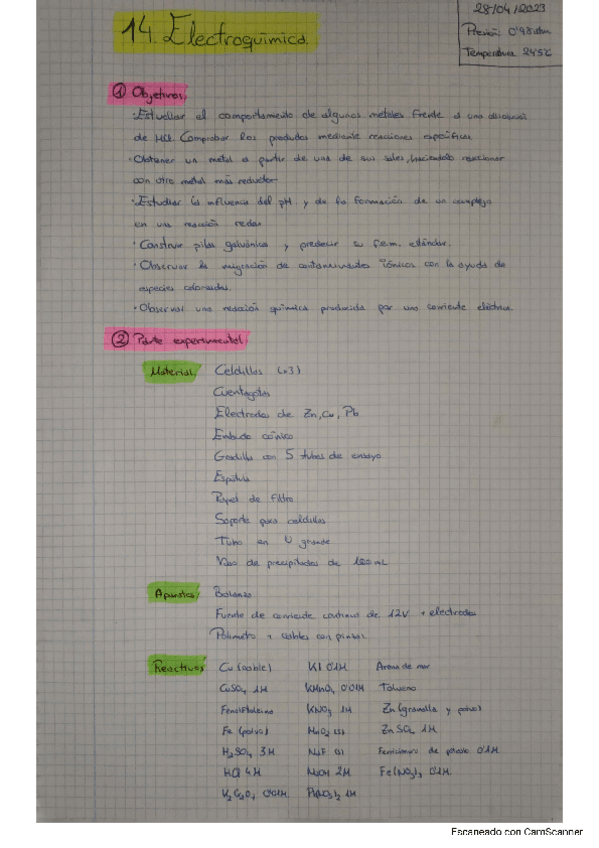 28/04/2023
Presión: 0'98 atm
Temperatura 24'5ºC
14. Electroquímica.
① Objetivos:
· Estudiar el comportamiento de algunos metales frente a una disolución
de HCl. Comprobar los productos mediante reacciones específicas.
· Obtener un metal a partir de una de sus sales, haciéndolo reaccionar
con otro metal más reductor
· Estudiar la influencia del pH y de la formación de un complejo
en una reacción redox
· Construir pilas galvánicas y predecir su f.e.m. estándar.
· Observar la migración de contaminantes iónicos con la ayuda de
especies coloreadas.
· Observar una reacción química producida por una corriente eléctrica.
② Parte experimental:
Material: Celdillas (x3)
Cuentagotas
Electrodos de Zn, Cu, Pb
Embudo cónico
Gradilla con 5 tubos de ensayo
Espátula
Papel de filtro
Soporte para celdillas
Tubo en U grande
Vaso de precipitados de 100 mL
Aparatos: Balanza
Fuente de corriente continua de 12V + electrodos
Polímetro + cables con pinzas
Reactivos: Cu (cable) KI 0'1M Arena de mar
CuSO4 1M KMnO4 0'01M Tolueno
Fenolftaleína KNO3 1M Zn (granalla y polvo)
Fe (polvo) MnO2 (s) ZnSO4 1M
H2SO4 3M NaF (s) Ferricianuro de potasio 0'1M
HCl 4M NaOH 2M Fe(NO3)3 0'1M
K2C2O4 0'01M Pb(NO3)2 1M
Escaneado con CamScanner